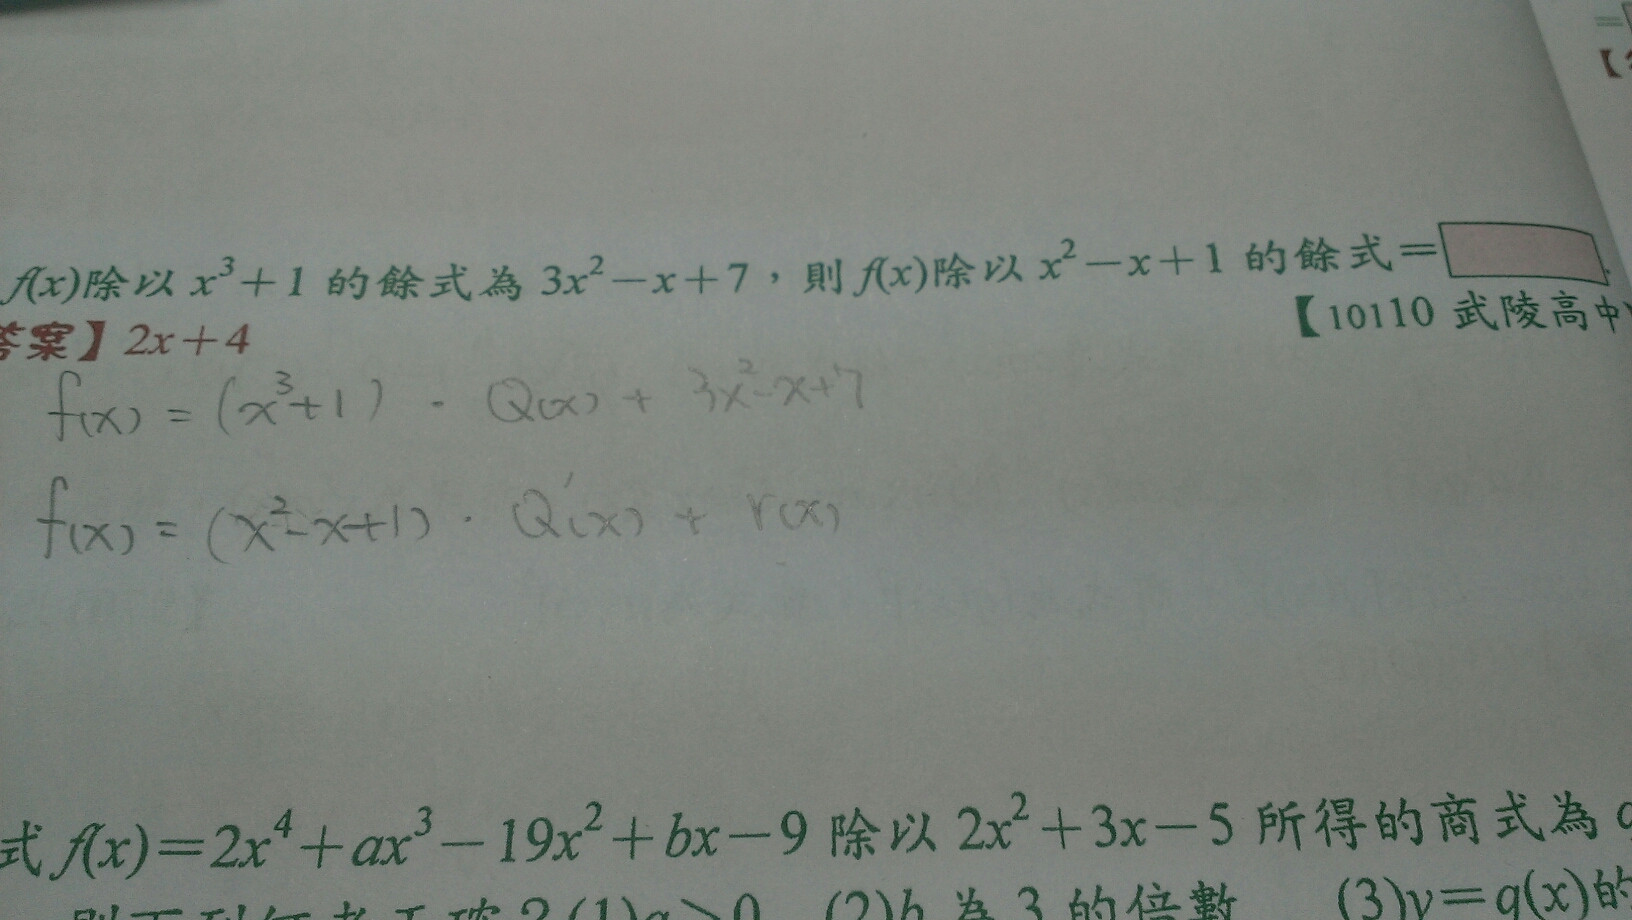 f(x)除以 x³+1 的餘式為 3x²-x+7，則 f(x)除以 x²-x+1 的餘式=
【10110 武陵高中
答案】2x+4
f(x) = (x³+1) · Q(x) + 3x²-x+7
f(x) = (x²-x+1) · Q'(x) + r(x)
式 f(x)=2x⁴+ax³-19x²+bx-9 除以 2x²+3x-5 所得的商式為
(2)b 為 3 的倍數 (3)y=q(x)的